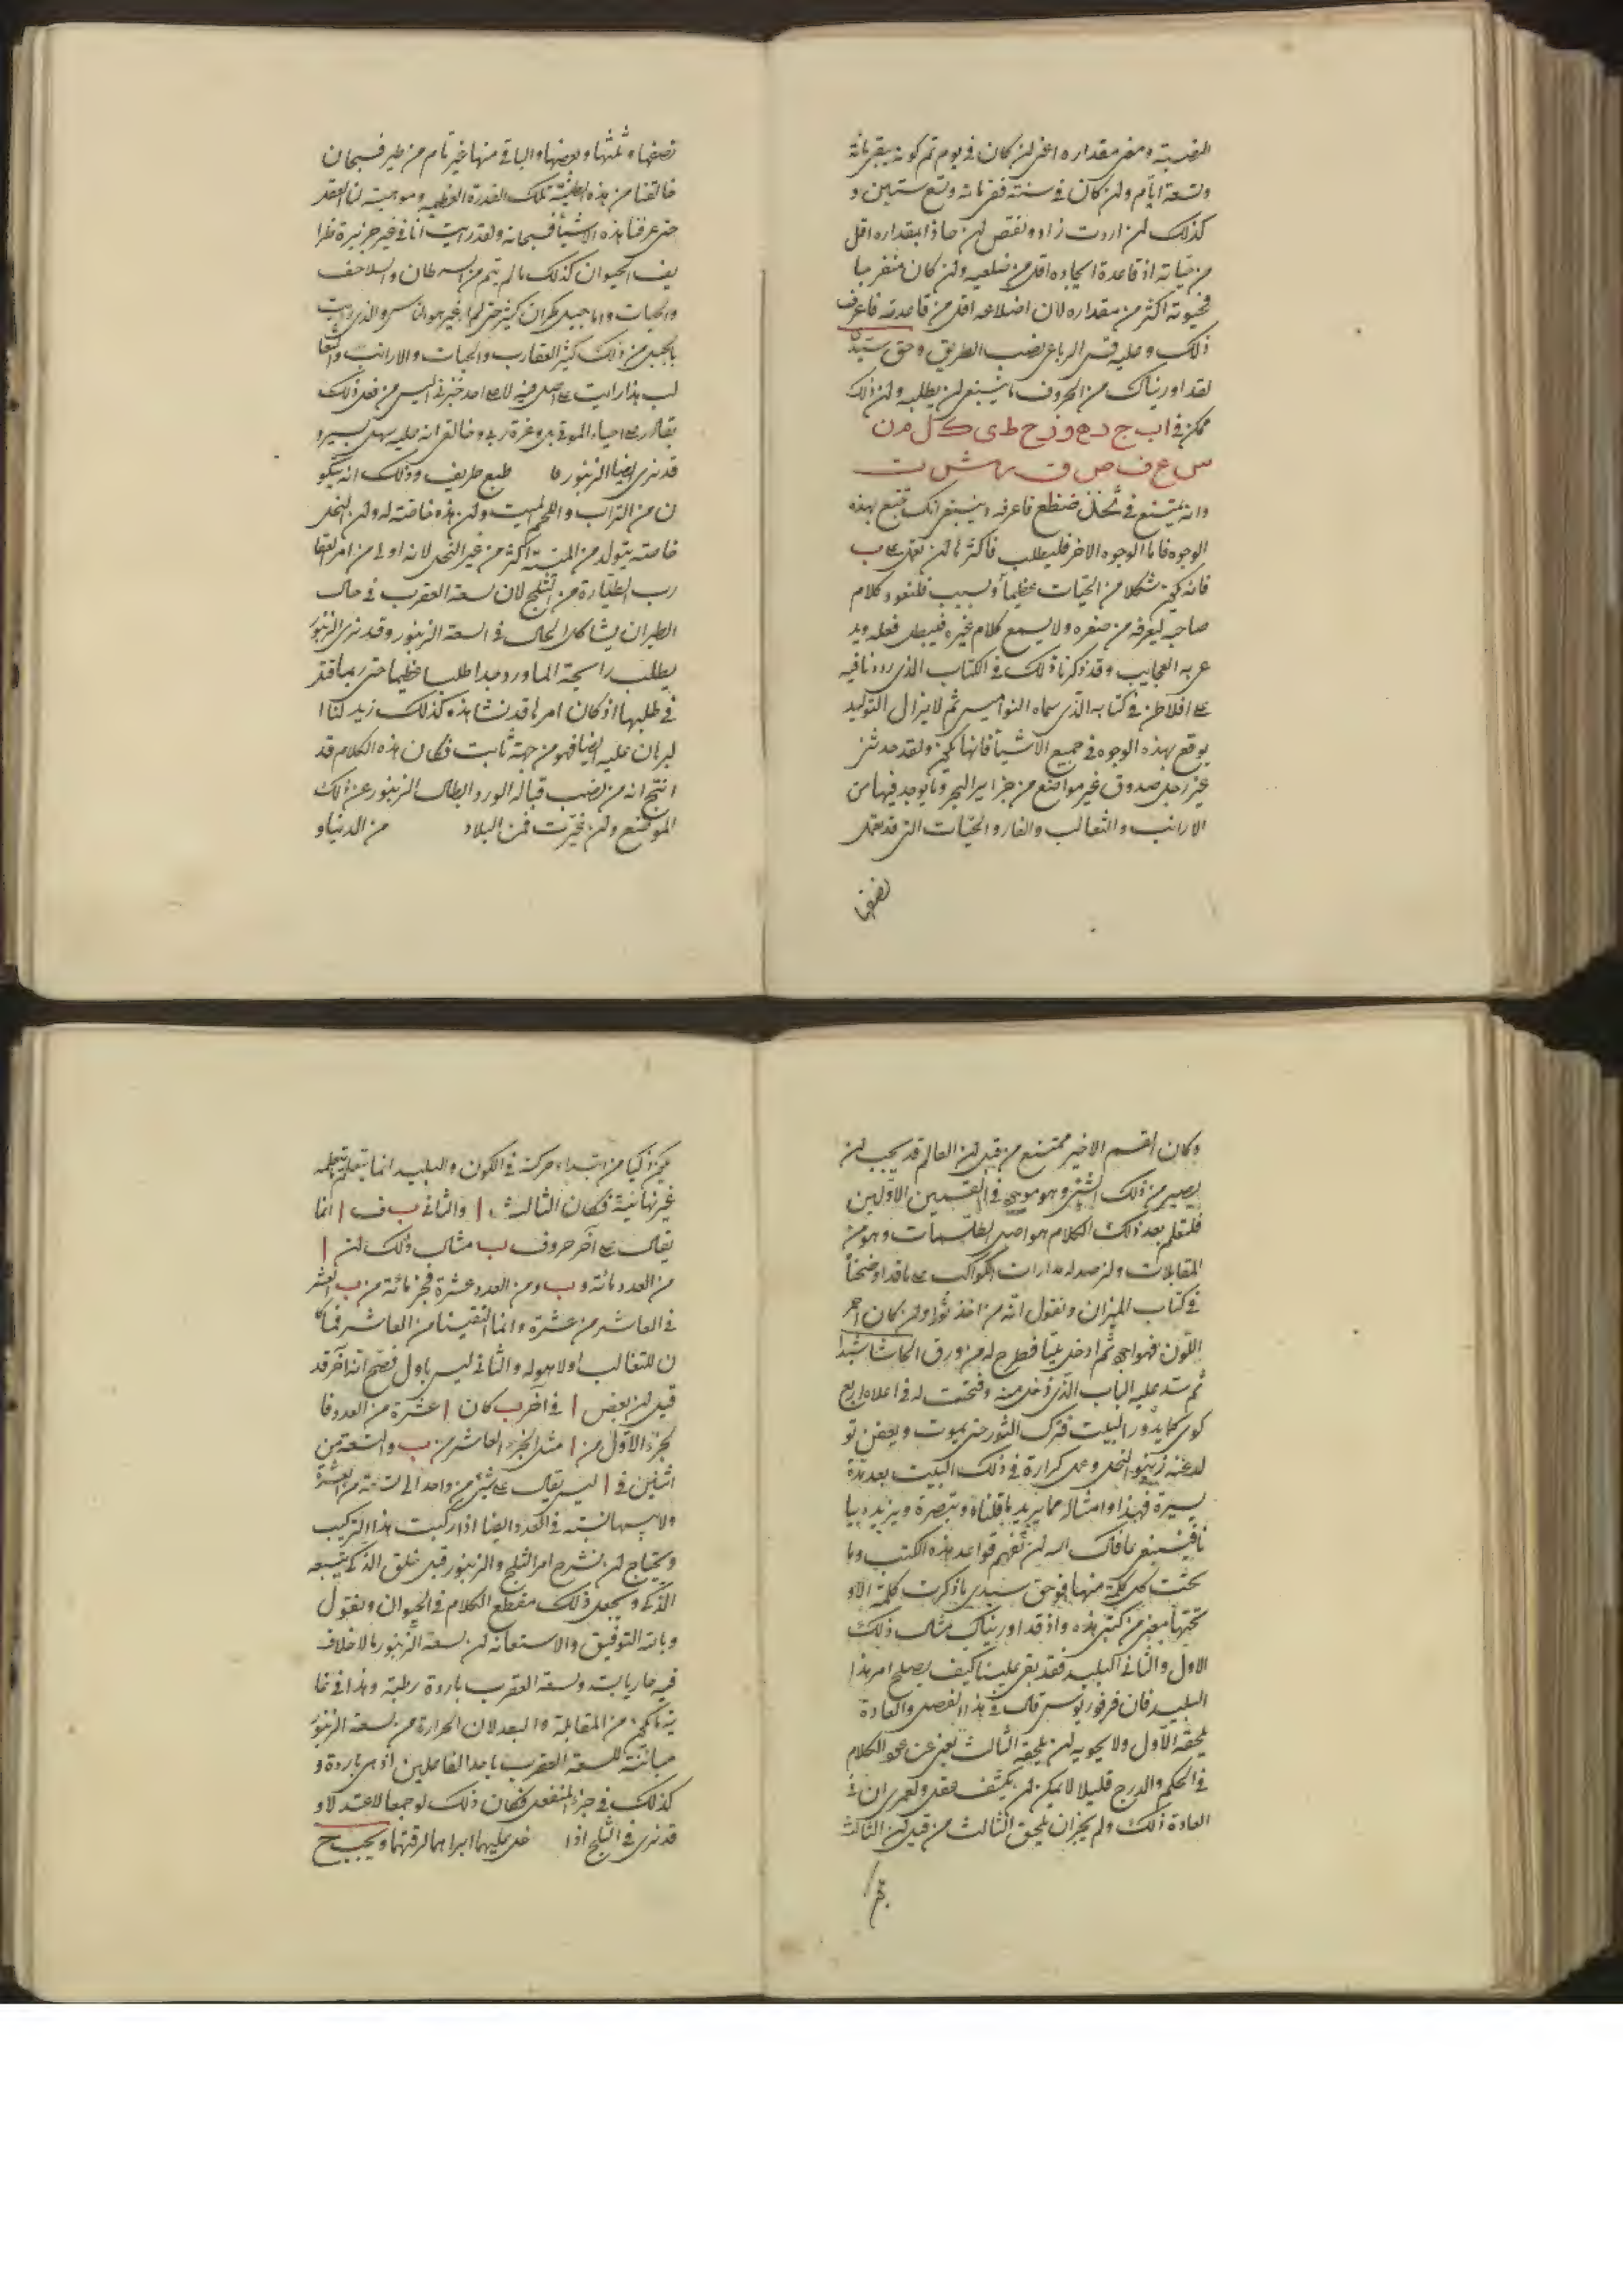 النصبة ومعنى مقداره اعنى ان كان فى يوم تم كونه بقى مائة
وتسعة ايام وان كان فى سنة فقى مائة وتسع ستين و
كذلك ان اردت زاد ونقص ان حاذا بمقداره اقل
من حياته اذ قاعدة ايجاده اقل من ضلعيه وان كان منفرجا
فحيوته اكثر من مقداره لان اضلاعه اقل من قاعدته فاعرف
ذلك وعليه قس الرباعى نصب الطريق وحق سيدى
لقد اوريناك من الحروف ما ينبغى ان يطلبه وان ذلك
ممكن فى ا ب ج د ه و ز ح ط ى ك ل م ن
س ع ف ص ق ر ش ت
وانه يمتنع فى ثخذ ضظغ فاعرفه وينبغى انك تقنع بهذه
الوجوه فاما الوجوه الاخر فليطلب فاكثر ما ان تعمل على ب
فانه يكون شكلا من الحيات عظيما وليبب فلنعود كلام
صاحبه ليعرفه من صغره ولا يسمع كلام غيره فيبطل فعله ويد
عى به العجايب وقد ذكرنا ذلك فى الكتاب الذى رددنا فيه
على افلاطن فى كتابه الذى سماه النواميس ثم لا يزال التوليد
يوقع بهذه الوجوه فى جميع الاشيا فانها تكون ولقد حدثنى
غير رجل صدوق غير مواضع من جزاير البحر وما يوجد فيها من
الارانب والثعالب والفار والحيات التى قد عمل
نصفها
نصفها وثلثها وبعضها والباقى منها غير تام من طير فسبحان
خالقنا من هذه الطينة تلك القدرة العظيمة وموجبة لنا العقد
حتى عرفنا هذه الاشيا فسبحانه ولقد رايت انا فى غير جزيرة ظرا
يف الحيوان كذلك ما لم يتم من السرطان والسلاحف
والحيات واما جبل مكران كثير حتى لم ار غيره هو الناس والذى رايت
بالجبل من ذلك كثير العقارب والحيات والارانب والثعا
لب هذا رايت على اصل فيه لا على احد خبرنى اليس من فعل ذلك
بقادر على احياء الموتى بلى وعزة ربى وخالقى انه عليه سهل يسير و
قد نرى ايضا الزنبور ما طبع طريف وذلك انه يتكو
ن من التراب واللحم الميت وان هذه خاصته له وان النحل
خاصته يتولد من الميتة اكثر من غير النحل لانه اولى من امر العقا
رب الطيارة من الثلج لان لسعة العقرب فى حال
الطيران يشاكل الحال فى لسعة الزنبور وقد نرى الزنبور
يطلب رايحة الماورد جدا طلبا عظيما حتى ربما قتل
فى طلبها اذ كان امرا قد نشاهده كذلك زيد لنا ا
لبرهان عليه ايضا فهو من جهة ثابت فكان هذه الكلام قد
انتج انه من نصب قبالة الورد ابطال الزنبور عن ذلك
الموضع وان تخيرت فمن البلاد من الدنيا و
وكان القسم الاخير ممتنع من قبل ان العالم قد يجب ان
يصير من ذلك الشئ وهو موجود فى القسمين الاولين
فلتعلم بعد ذلك الكلام هو اصل الطلسمات وهو من
المقابلات وان رصد له مدارات الكواكب على ما قد اوضحنا
فى كتاب الميزان ونقول انه من اخذ ثورا وان كان احمر
اللون فهو اجود ثم ادخل بيتا فطرح له من ورق الكاشا شيئا
ثم سد عليه الباب الذى دخل منه وفتحت له فى اعلاه اربع
كوى كما يدور البيت فترك الثور حتى يموت ويعفن تو
لد عنه زنبور النحل وعمل كرارة فى ذلك البيت بعد مدة
يسيرة فهذا وامثاله مما يريد ما قلناه وتبصرة ويزيده بيا
نا فينبغى عافاك الله ان تفهم قواعد هذه الكتب وما
تحت كل كلمة منها فوحق سيدى ما ذكرت كلمة الا و
تحتها معنى من كتبى هذه واذ قد اوريناك مثال ذلك
الاول والثانى البليد فقد بقى علينا كيف يصلح امر هذا
البليد فان فرفوريوس قال فى هذا الفصل والعادة
يلحقه الاول ولا يحويه ان يلحقه الثالث نعنى عن نحو الكلام
فى الحكم والدرج قليلا لا يمكن ان يكشف فعل ولعمرى ان فى
العادة ذلك ولم يجز ان يلحق الثالث من قبل ان الثالث
يكون ذكيا من ابتداء حركة فى الكون والبليد انما يتعلم بتعلمه
غير نهائية فكان الثالث ا والثانى ب ف ا انما
يقال على آخر حروف ب مثال ذلك ان ا
من العدد مائة و ب ومن العدد عشرة فجزء مائة من ب العشر
فى العاشر من عشرة وانما التقينا من العاشر فما كا
ن للتعالب اولا هوله والثانى ليس باول فصح انه آخر قد
قيل ان بعض ا فى آخر ب كان ا عشرة من العدد فا
لجزء الاول من ا مثل الجزء العاشر من ب والتسعة من
اثنين فى ا ليس يقال على شئ من واحد الى تسعة من العشرة
ولا يسهل نسبته فى العدد وايضا اذا ركبت هذا التركيب
ونحتاج ان نشرح امر الثلج والزنبور قبل خلق الذكى يتبعه
الذكى ونجعل ذلك مقطع الكلام فى الحيوان ونقول
وبالله التوفيق والاستعانة ان لسعة الزنبور بلا خلاف
فيه حار يابسة ولسعة العقرب باردة رطبة وهذا فى غا
ية ما يكون من المقابلة والبعد لان الحرارة من لسعة الزنبور
مباينة للسعة العقرب باحد الفاعلين اذ هى باردة و
كذلك فى جزء المنفعل فكان ذلك لو جمعا لاعتدلا و
قد نرى فى الثلج اذا خلى عليهما ابراهما لرقتهما ويجب ح